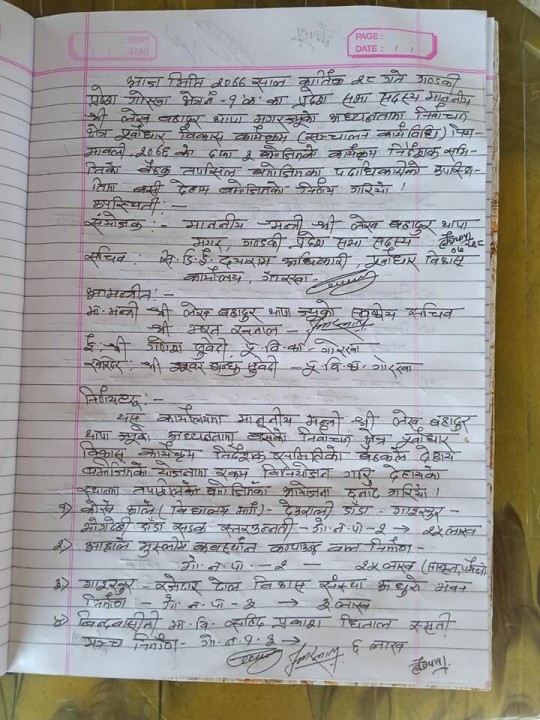 PAGE :
DATE : / /
आज मिति २०७७ साल कार्तिक २८ गते गण्डकी
प्रदेश गोरखा क्षेत्र नं-१ का प्रदेश सभा सदस्य माननीय
श्री लेख बहादुर थापा मगरज्युको अध्यक्षतामा निर्वाचन
क्षेत्र पूर्वाधार विकास कार्यक्रम (सञ्चालन कार्यविधि) निय-
मावली, २०७६ को दफा २ बमोजिमको कार्यक्रम निर्देशक समि-
तिको बैठक तपसिल बमोजिमका पदाधिकारीको उपस्थि-
तिमा बसी देहाय बमोजिमको निर्णय गरियो ।
उपस्थिती :-
संयोजक :- माननीय मन्त्री श्री लेख बहादुर थापा
मगर, गण्डकी प्रदेश सभा सदस्य
सचिव : सि.डि.ई. दयाराम अधिकारी, पूर्वाधार विकास
कार्यालय, गोरखा -
आमन्त्रीत :-
मा. मन्त्री श्री लेख बहादुर थापा ज्युको स्वकीय सचिव
श्री भरत
ई. श्री सुवेदी, पू. वि. का. गोरखा
श्री सुवेदी - पू. वि. का. गोरखा
निर्णयहरू :-
यस कार्यालयमा माननीय मन्त्री श्री लेख बहादुर
थापा ज्युको अध्यक्षतामा बसेको निर्वाचन क्षेत्र पूर्वाधार
विकास कार्यक्रम निर्देशक समितिको बैठकले देहाय
बमोजिमको योजनामा रकम विनियोजन गरि देहायका
स्थानमा तपशिलको बमोजिमका आयोजना छनौट गरियो ।
१) (विद्यालय मार्ग) - देउराली डाँडा -
डाँडा सडक स्तरउन्नती - गो. न. पा. - २ → २५ लाख
२) मुस्लीम कब्रस्थान कम्पाउण्ड वाल निर्माण -
गो. न. पा. - २ - २५ लाख
३) टोल विकास संस्था अधुरो भवन
निर्माण - गो. न. पा - ३ → ३ लाख
४) मा. वि. सहिद प्रकाश धिताल स्मृती
मञ्च निर्माण - गो. न. पा. ३ → ६ लाख